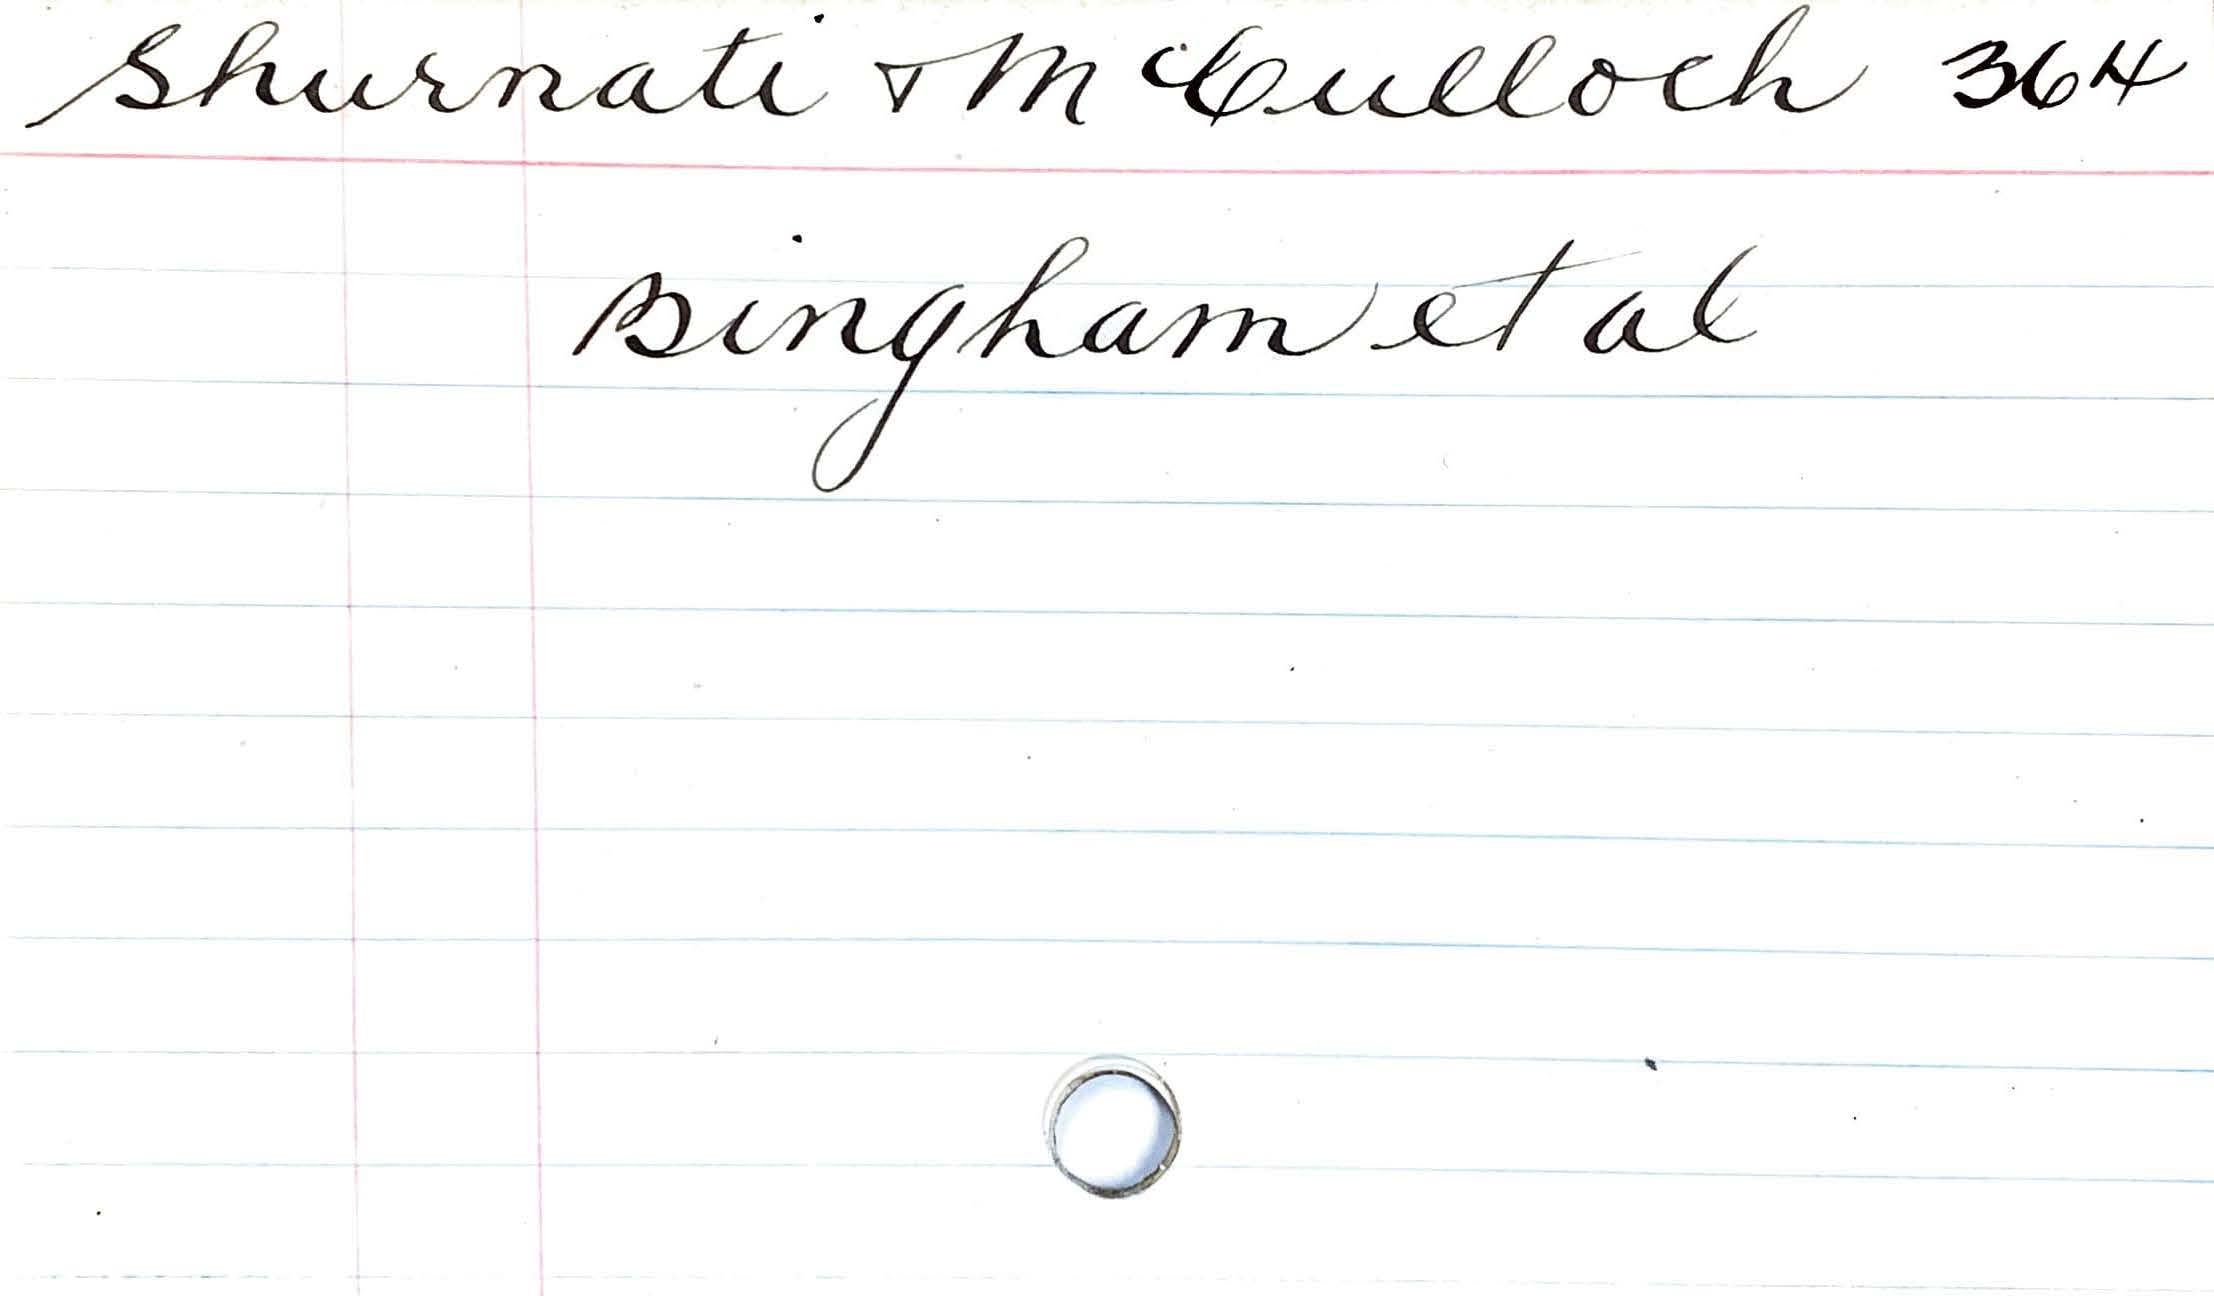 Shurnati & McCulloch 364
Bingham et al